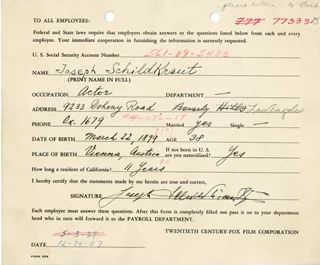 please return to Bark
777 77335
TO ALL EMPLOYEES:
Federal and State laws require employers obtain answers to the questions listed below from each and every
employee. Your immediate cooperation in furnishing the information is earnestly requested.
U. S. Social Security Account Number
NAME Joseph Schildkraut
(PRINT NAME IN FULL)
OCCUPATION Actor DEPARTMENT —
ADDRESS 9233 Doheny Road Beverly Hills Los Angeles
PHONE Ox. 1679 Married yes Single —
DATE OF BIRTH March 22, 1899 AGE 38
PLACE OF BIRTH Vienna, Austria If not born in U. S. are you naturalized? Yes
How long a resident of California? 11 Years
I hereby certify that the statements made by me herein are true and correct,
SIGNATURE Joseph Schildkraut
Each employee must answer these questions. After this form is completely filled out pass it on to your department
head who in turn will forward it to the PAYROLL DEPARTMENT.
TWENTIETH CENTURY-FOX FILM CORPORATION
DATE